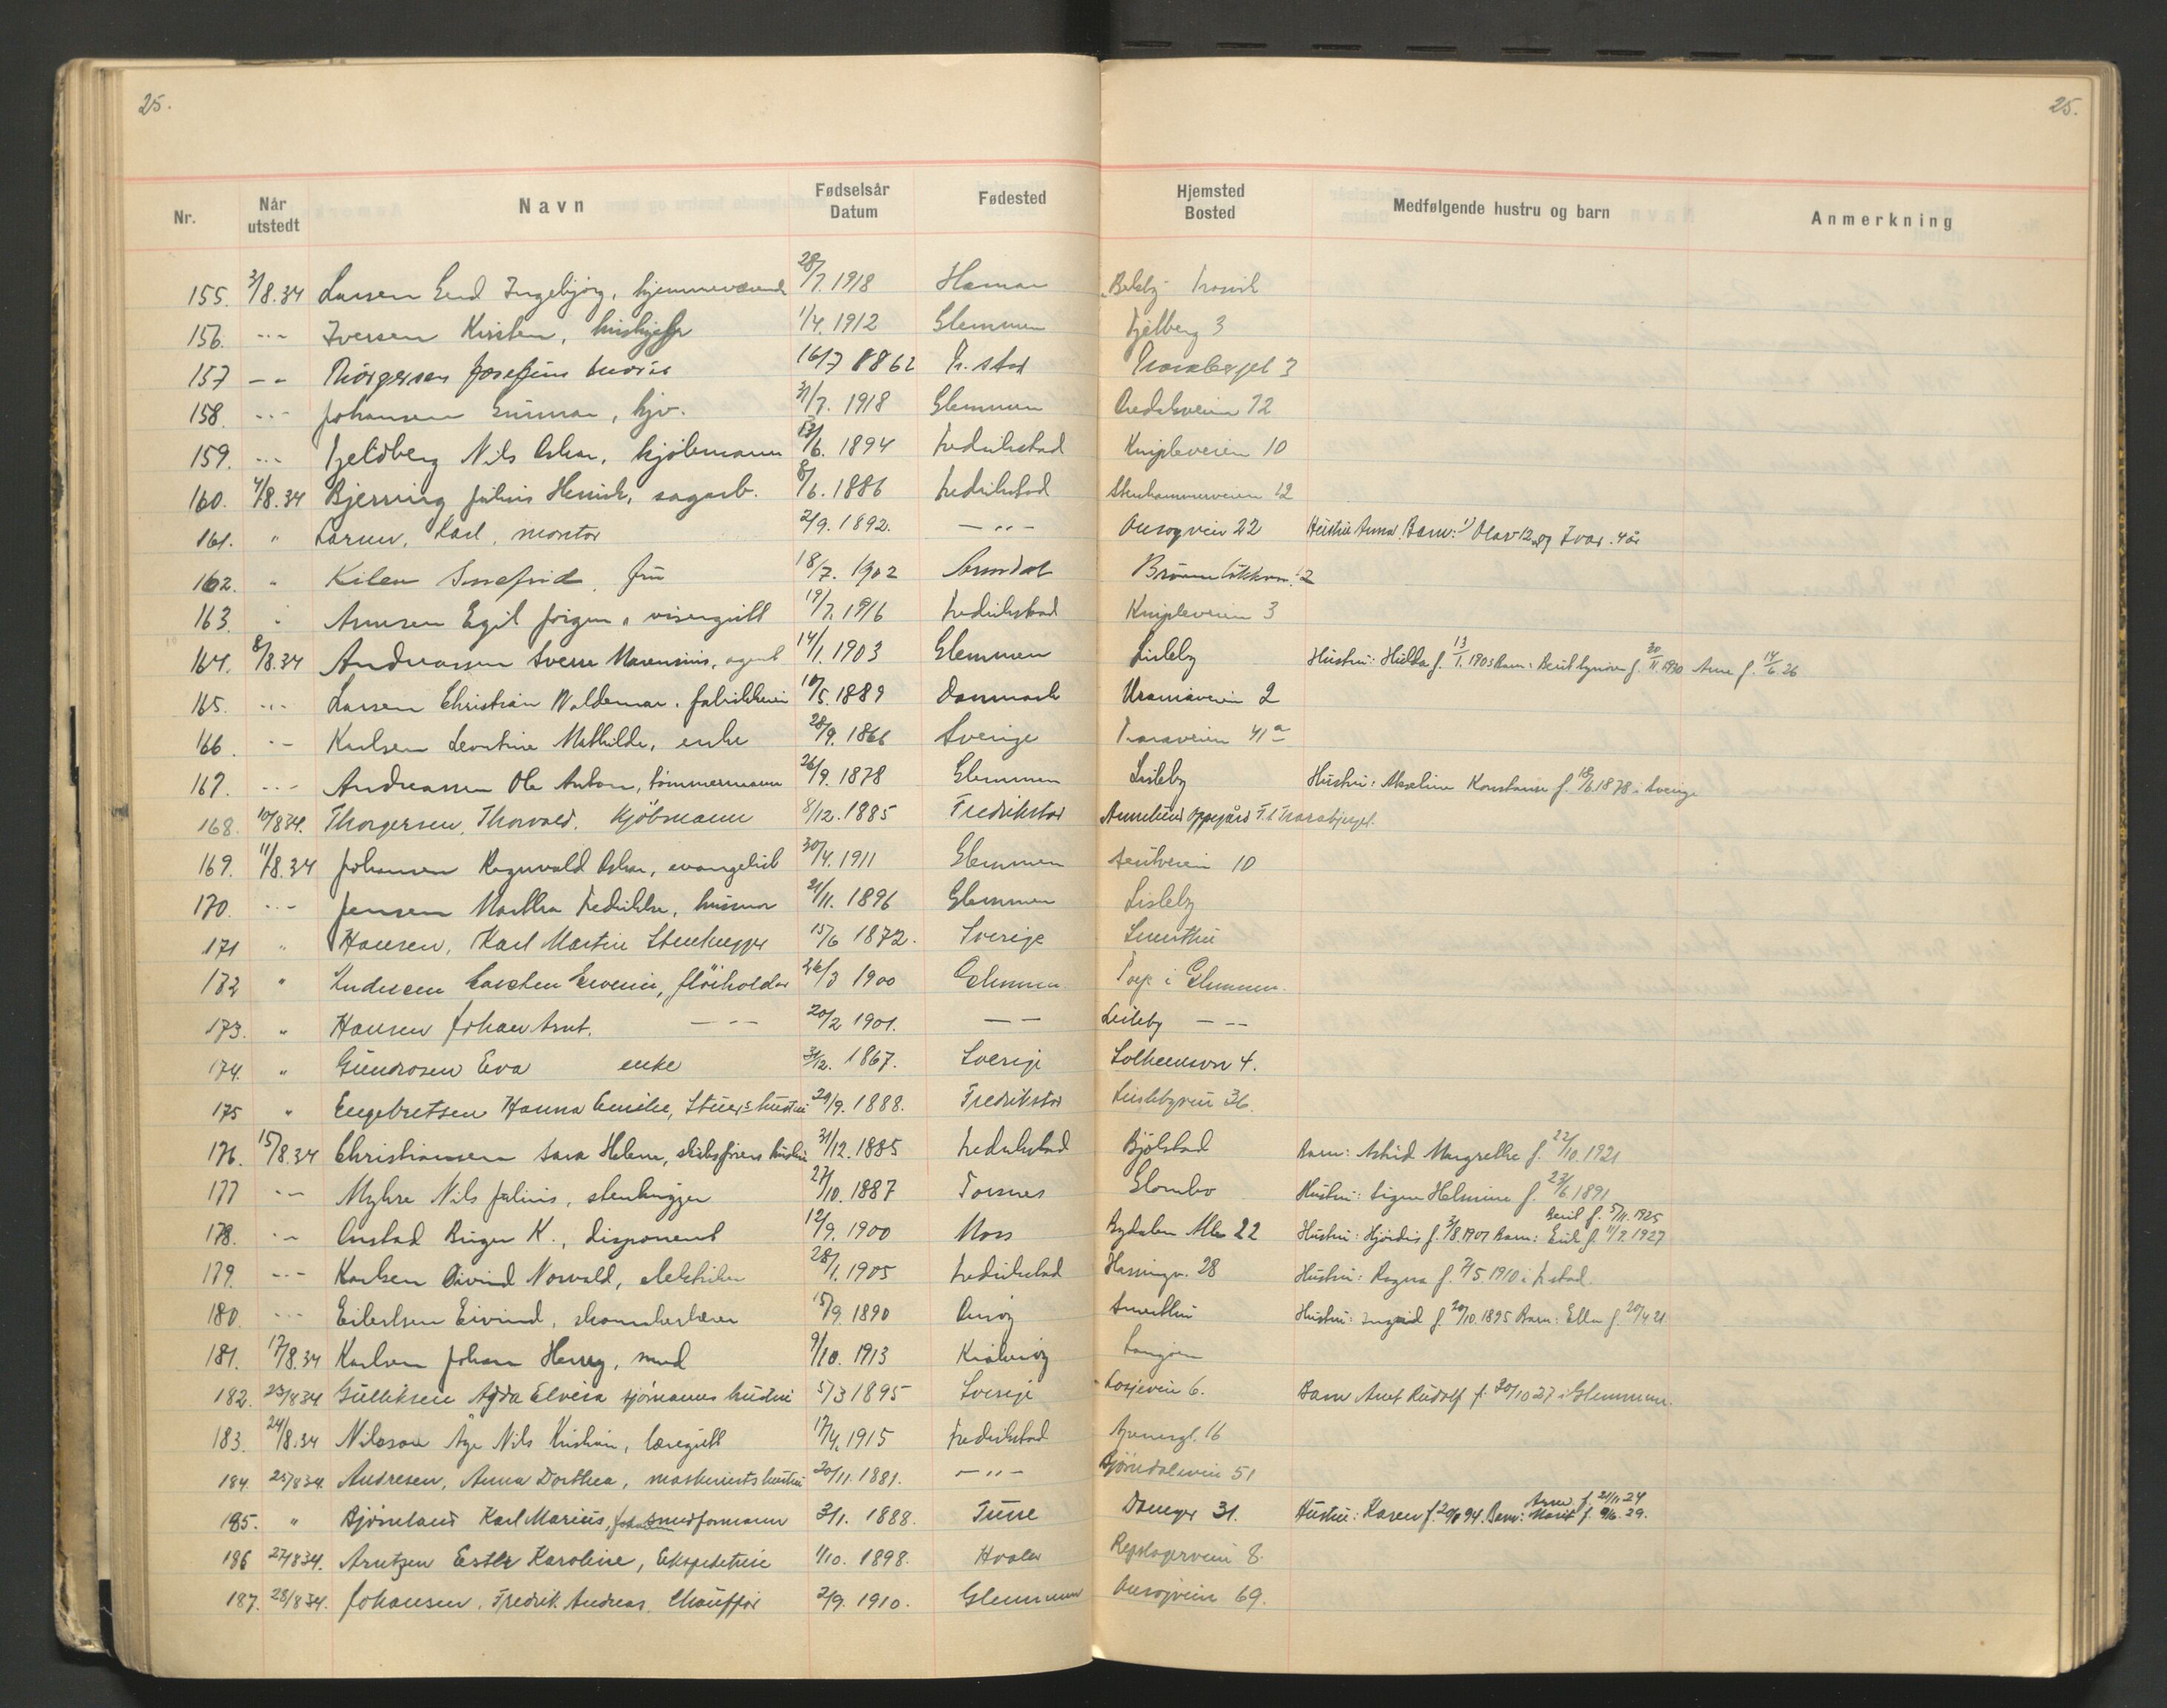 25.
25.
Nr. Når utstedt Navn Fødselsår Datum Fødested Hjemsted Bosted Medfølgende hustru og barn Anmerkning
155. 3/8.34 Larsen Ingebjørg, hjemmeværende 28/7. 1918 Hamar
156. -"- Iversen Kirsten, 1/4. 1912 Glemmen 3
157 -"- Josefine 16/7 1862 Fr. stad Traraberget 3
158. -"- Johansen Gunnar, hjv. 31/7. 1918 Glemmen 72
159. -"- Fjeldberg Nils Oskar, kjøbmann 13/6. 1894 Fredrikstad Knipleveien 10
160. 4/8.34 Bjerning Julius Henrik, sagarb. 8/6. 1886 Fredrikstad Stenhammerveien 12
161. " Larsen, Karl, montør 2/9. 1892. -"- Onsøyvein 22 Hustru Anna. Barn: 1) Olav 12 og Ivar 4 år
162. " Kilen Snefrid, fru 18/7. 1902 12
163. " Arnesen Egil Jørgen, visergutt 19/7. 1916 Fredrikstad Knipleveien 3
164. 8/8.34 Andreassen Sverre Marensius, agent 14/1. 1903 Glemmen Lisleby Hustru: Hulda f. 13/1. 1903 Barn: Berit f. 30/11 1930 Arne f. 14/6 26
165. -"- Larsen Christian Waldemar, 10/5. 1889 Danmark Uraniaveien 2
166. -"- Karlsen Leontine Mathilde, enke 28/9. 1866 Sverige Traraveien 41a
167. -"- Andreassen Ole Anton, tømmermann 26/9. 1878 Glemmen Lisleby Hustru: Konstanse f. 18/6 1878 i Sverige
168. 10/8 34. Thorgersen, Thorvald, Kjöbmann 8/12. 1885 Fredrikstad Annelund Oppegård
169. 11/8.34 Johansen Ragnvald Oskar, evangelist 30/4. 1911 Glemmen 10
170. -"- Jensen Martha Fredrikke, husmor 21/11. 1896 Glemmen Lisleby
171 " Hansen, Karl Martin Stenhugger 15/6 1872. Sverige
172 " Andersen Carsten 26/3 1900 Glemmen Torp i Glemmen.
173. " Hansen Johan Arnt. -"- 20/2 1901. -"- Lisleby -"-
174. " Gundrosen Eva enke 31/12. 1867. Sverige Solheimsvn 4.
175 " Engebretsen Hanna Emilie, hustru 29/9. 1888. Fredrikstad Lislebyvein 36.
176. 15/8.34 Christiansen Sara Helene, skibsførers hustru 31/12. 1885 Fredrikstad Bjølstad Barn: Astrid Margrethe f. 22/10. 1921
177 -"- Myhre Nils Julius, stenhugger 27/10. 1887 Torsnes Glombo Hustru: Signe Helmine f. 23/6 1891
178. -"- Onstad Birger K., disponent 12/9. 1900 Moss Bydalen Alle 22 Hustru: Hjördis f. 3/8. 1901 Barn: Erik f. 11/7. 1927 Berit f. 5/11. 1925
179. -"- Karlsen Øivind Norvald, elektriker 28/1. 1905 Fredrikstad 28 Hustru: Ragna f. 7/5. 1910 i Fr.stad.
180. -"- Eilertsen Eivind, 15/9. 1890 Onsøy Smerthu Hustru: Ingrid f. 20/10. 1895 Barn: Ellen f. 20/4 21
181. 17/8.34 Karlsen Johan Henry, smed 9/10. 1913 Kråkerøy Langøen
182. 23/8 34 Gulliksen Agda Elvira sjømanns hustru 5/3 1895 Sverige Losjevein 6. Barn Arnt Rudolf f. 30/10 27 i Glemmen.
183. 24/8.34 Nilsson Åge Nils Kristian, læregutt 17/4. 1915 Fredrikstad 16
184. 25/8 34. Andresen, Anna Dorthea, maskinists hustru 20/11. 1881. -"- Bjørndalsvein 51
185. " Bjørneland Karl Marius, smedformann 3/1. 1888. Tune 31. Hustru: Karen f. 20/8 94. Barn: Arne f. 21/11 24 Marit f. 9/6. 29.
186 27/8 34. Arntzen Ester Karoline, Ekspeditrise 1/10. 1898. Hvaler Repslagerveien 8.
187. 28/8 34. Johansen, Fredrik Andreas. Chauffør 2/9. 1910. Glemmen Onsøyvein 69.